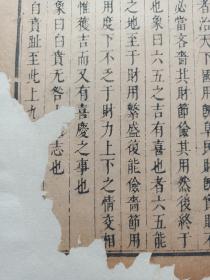 者治天下國用
必當吝嗇其財節儉其用然後終于
也象曰六五之吉有喜也者六五能
之地至于財用繁盛後能儉嗇節用
用度下不乏于財力上下之情交相
惟獲吉而又有喜慶之事也
象曰白賁无咎 志也
白賁趾至此上九